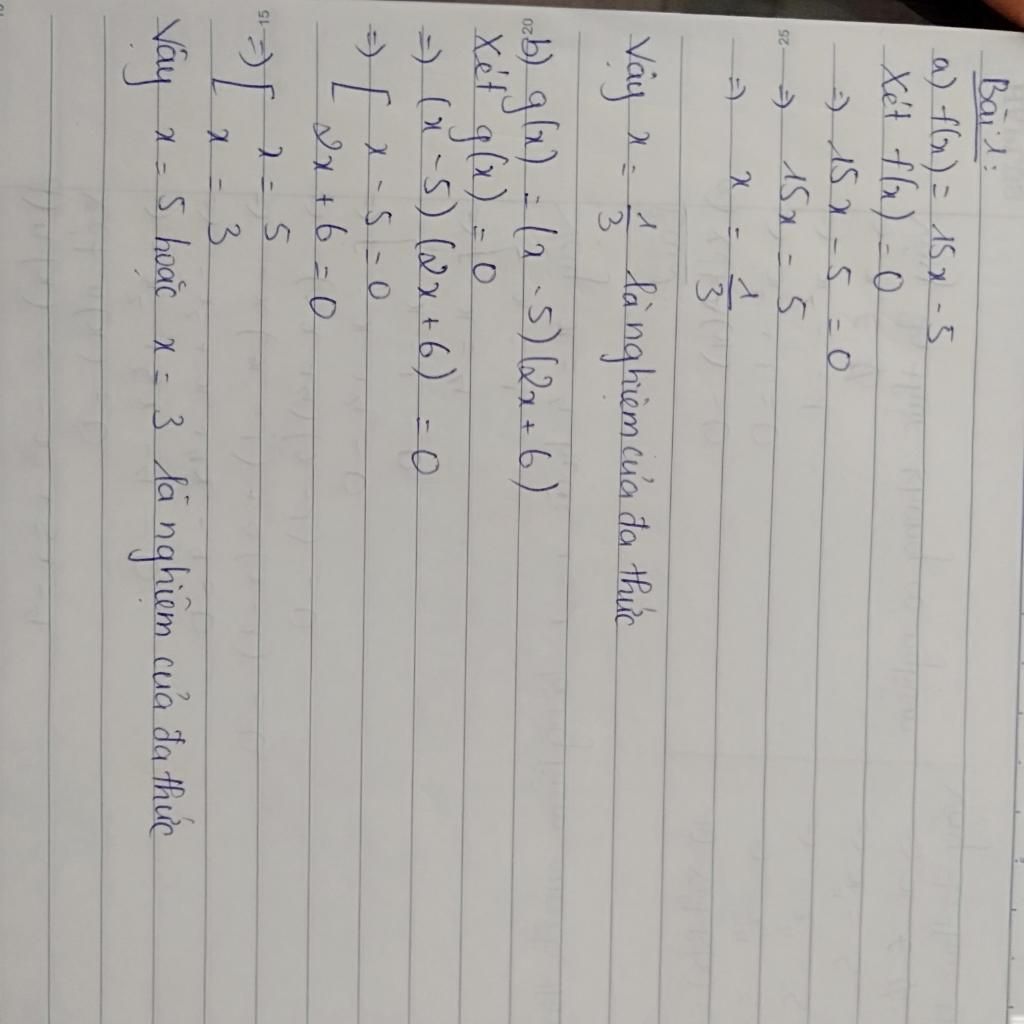 Bài 1:
a) f(x) = 15x - 5
Xét f(x) = 0
=) 15x - 5 = 0
25 =) 15x = 5
=) x = 1/3
Vậy x = 1/3 là nghiệm của đa thức
20 b) g(x) = (x - 5)(2x + 6)
Xét g(x) = 0
=) (x - 5)(2x + 6) = 0
=) [ x - 5 = 0
2x + 6 = 0
15 =) [ x = 5
x = 3
Vậy x = 5 hoặc x = 3 là nghiệm của đa thức